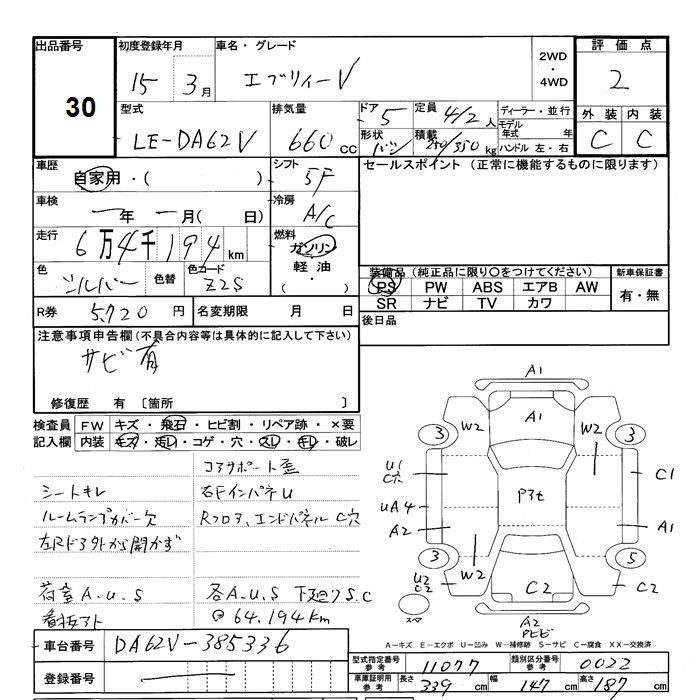 出品番号
30
初度登録年月
15 3月
車名・グレード
エブリィーV
2WD
・
4WD
評価点
2
型式
LE-DA62V
排気量
660 cc
ドア 5
形状 バン
定員 4/2 人
積載 250/350 kg
ディーラー・並行
モデル年式 年
ハンドル 左・右
外装 内装
C C
車歴
自家用・( )
シフト
5F
セールスポイント (正常に機能するものに限ります)
車検
年 月( 日)
冷房
A/C
走行
6万4千194 km
燃料
ガソリン
軽油
・( )
色
シルバー
色替
色コード
Z2S
装備品 (純正品に限り○をつけてください)
PS PW ABS エアB AW
SR ナビ TV カワ
新車保証書
有・無
R券 5,720 円
名変期限 月 日
後日品
注意事項申告欄(不具合内容等は具体的に記入して下さい)
サビ有
修復歴 有 〔箇所 〕
検査員記入欄
FW キズ・飛石・ヒビ割・リペア跡・×要
内装 キズ・汚レ・コゲ・穴・スレ・キレ・破レ
コアサポート歪
シートキレ 右FインパネU
ルームランプカバー欠 Rフロア、エンドパネルC穴
左Rドア外から開かず
荷室A.U.S 各A.U.S 下廻りS.C
看板アト @64,194km
A1
A1
W2 W2
3 3
U1
C穴
C1
P3t
UA4
A2 A1
3 5
W2
U2
C2
C2
C2
スペア
A2
A－キズ E－エクボ U－凹み W－補修跡 S－サビ C－腐食 XX－交換済
車台番号 DA62V-385336
登録番号
型式指定番号参考 11077
類別区分番号参考 0022
車庫証明用参考 長さ 339 cm 幅 147 cm 高さ 187 cm